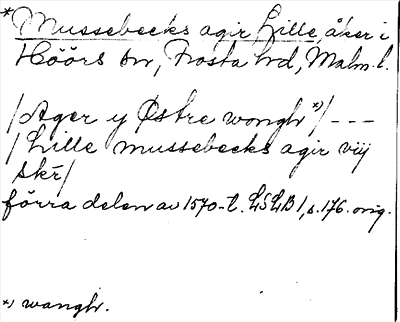 *Mussebecks agir Lille, åker i
Höörs sn, Frosta hd, Malm. l.
/Ager y Østre wongh*)/ - - -
/Lille mussebecks agir viij
skr̄/
förra delen av 1570-t. LSLB 1, s. 176. orig.
*) wangh.